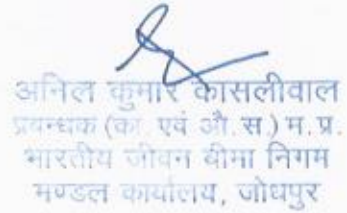 अनिल कुमार कासलीवाल
प्रबन्धक (का. एवं औ. स.) म. प्र.
भारतीय जीवन बीमा निगम
मण्डल कार्यालय, जोधपुर